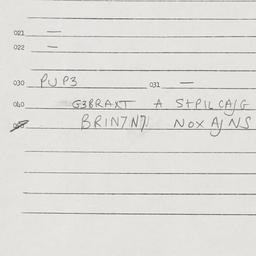 021 —
022 —
030 PUP3 031 —
040 G3BRAXT A StPIL CA/G
BRIN7N7! NOX A/NS